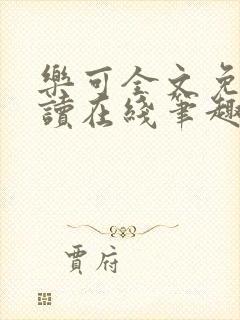 樂可全文免
讀在綫筆趣
賈府